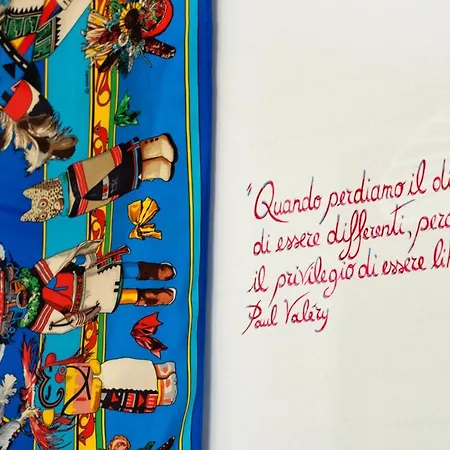 "Quando perdiamo il di
di essere differenti, per
il privilegio di essere li
Paul Valéry